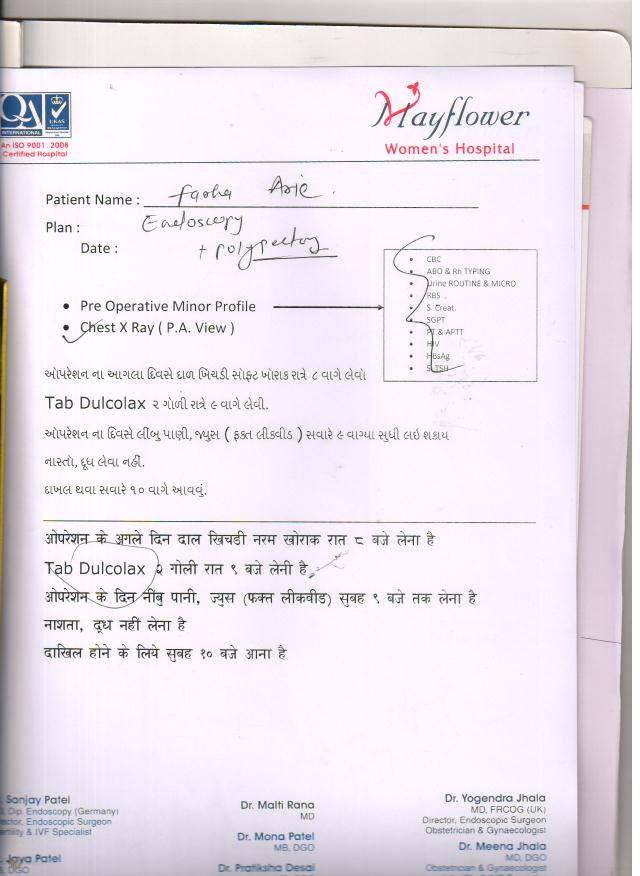 QA
INTERNATIONAL
UKAS
An ISO 9001 : 2008
Certified Hospital
Mayflower
Women's Hospital
Patient Name :
Plan : Endoscopy
Date : + polypectomy
• Pre Operative Minor Profile
• Chest X Ray ( P.A. View )
• CBC
• ABO & Rh TYPING
• Urine ROUTINE & MICRO
• RBS .
• S. Creat.
• SGPT
• PT & APTT
• HIV
• HBsAg
• S. TSH
ઓપરેશન ના આગલા દિવસે દાળ ખિચડી સોફ્ટ ખોરાક રાત્રે ૮ વાગે લેવો
Tab Dulcolax ૨ ગોળી રાત્રે ૯ વાગે લેવી.
ઓપરેશન ના દિવસે લીંબુ પાણી, જ્યુસ ( ફક્ત લીકવીડ ) સવારે ૯ વાગ્યા સુધી લઇ શકાય
નાસ્તો, દૂધ લેવા નહીં.
દાખલ થવા સવારે ૧૦ વાગે આવવું.
ओपरेशन के अगले दिन दाल खिचडी नरम खोराक रात ८ बजे लेना है
Tab Dulcolax २ गोली रात ९ बजे लेनी है
ओपरेशन के दिन नींबु पानी, ज्युस (फक्त लीकवीड) सुबह ९ बजे तक लेना है
नाशता, दूध नहीं लेना है
दाखिल होने के लिये सुबह १० बजे आना है
Sanjay Patel
Dip. Endoscopy (Germany)
ector, Endoscopic Surgeon
ertility & IVF Specialist
Jaya Patel
DGO
Dr. Malti Rana
MD
Dr. Mona Patel
MB, DGO
Dr. Pratiksha Desai
Dr. Yogendra Jhala
MD, FRCOG (UK)
Director, Endoscopic Surgeon
Obstetrician & Gynaecologist
Dr. Meena Jhala
MD, DGO
Obstetrician & Gynaecologist